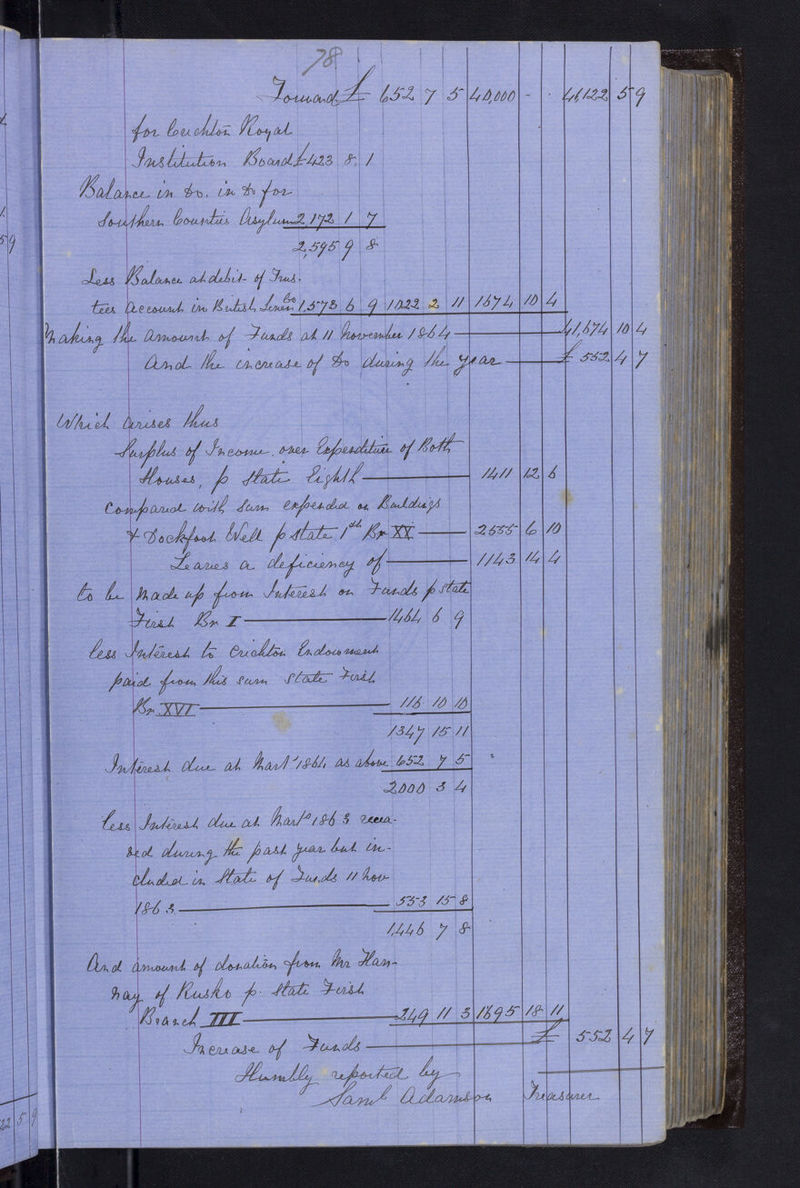 78
Forward £ 652 7 5 40,000 - - 41,122 5 9
for Crichton Royal
Institution Board £423 8. 1
Balance in Do. in Do for
Southern Counties Asylum 2,172 1 7
2,595 9 8
Less Balance at debit of Trus-
tees Account in British Linen Co 1,573 6 9 1022 2 11 1674 10 4
Making the amount of Funds at 11 November 1864 41,674 10 4
And the increase of Do during the year £ 552 4 7
Which arises thus
Surplus of Income over Expenditure of Both
Houses, p State Eighth 1411 12 6
Compared with Sum expended on Buildings
& Dockfoot Well p State 1th Br XX 2555 6 10
Leaves a deficiency of 1143 14 4
to be made up from Interest on Funds p State
First Bn I 1464 6 9
less Interest to Crichton Endowment
paid from this sum State First
Bn XVI 116 10 10
1347 15 11
Interest due at Marts 1864 as above 652 7 5
2000 3 4
less Interest due at Marts 1863 recei-
ved during the past year but in-
cluded in State of Funds 11 Nov
1863 553 15 8
1,446 7 8
And amount of donation from Mr Han-
nay of Rusko p. State First
Branch III 249 11 3 1695 18 11
Increase of Funds £ 552 4 7
Humbly reported by
Saml Adamson Treasurer
59
22 5 9